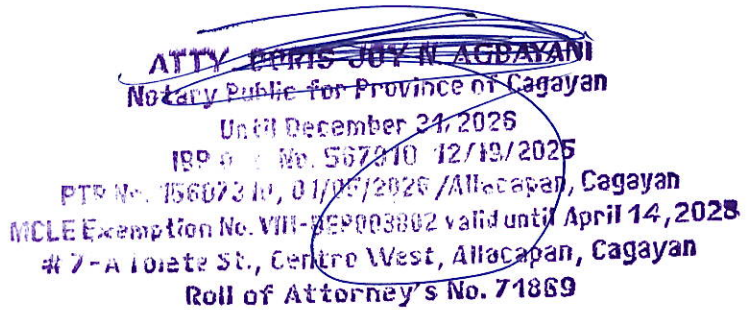 ATTY. DORIS JOY N. AGBAYANI
Notary Public for Province of Cagayan
Until December 31, 2026
IBP No. 567910 12/19/2025
PTR No. 01/05/2026 /Allacapan, Cagayan
MCLE Exemption No. VIII- valid until April 14, 2028
# 7-A St., Centro West, Allacapan, Cagayan
Roll of Attorney's No. 71869